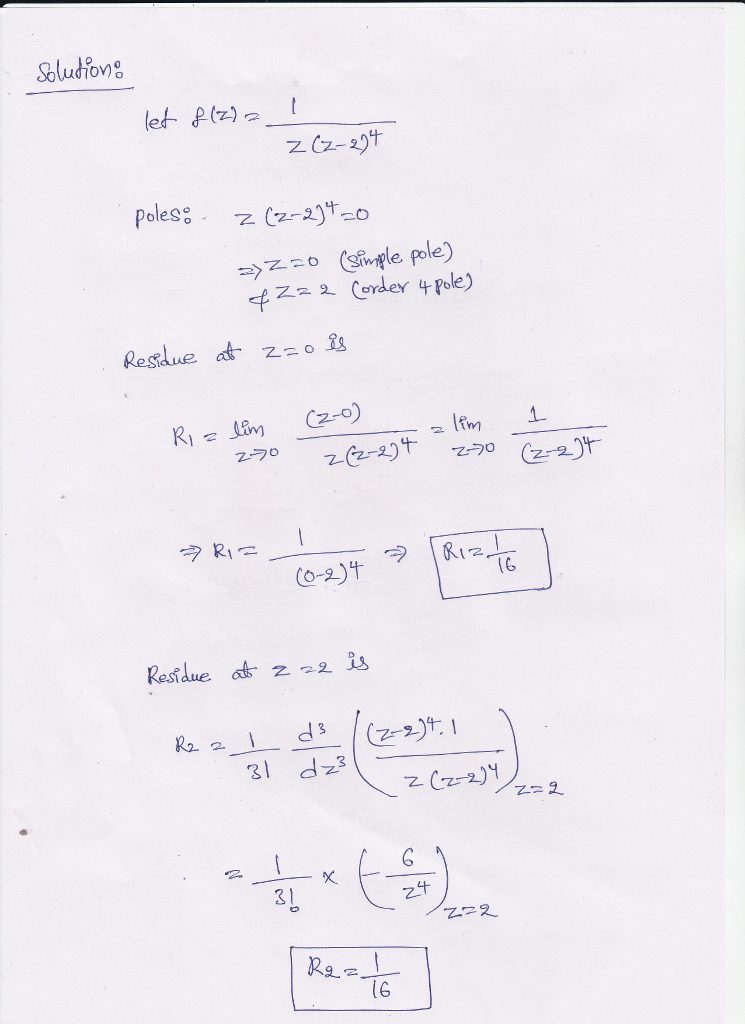 Solution:
let f(z) = 1 / z(z-2)^4
poles: z(z-2)^4 = 0
⇒ z = 0 (simple pole)
& z = 2 (order 4 pole)
Residue at z = 0 is
R1 = lim z→0 (z-0) / z(z-2)^4 = lim z→0 1 / (z-2)^4
⇒ R1 = 1 / (0-2)^4 ⇒ R1 = 1/16
Residue at z = 2 is
R2 = 1/3! d^3/dz^3 ( (z-2)^4 . 1 / z(z-2)^4 ) z=2
= 1/3! × ( - 6/z^4 ) z=2
R2 = 1/16